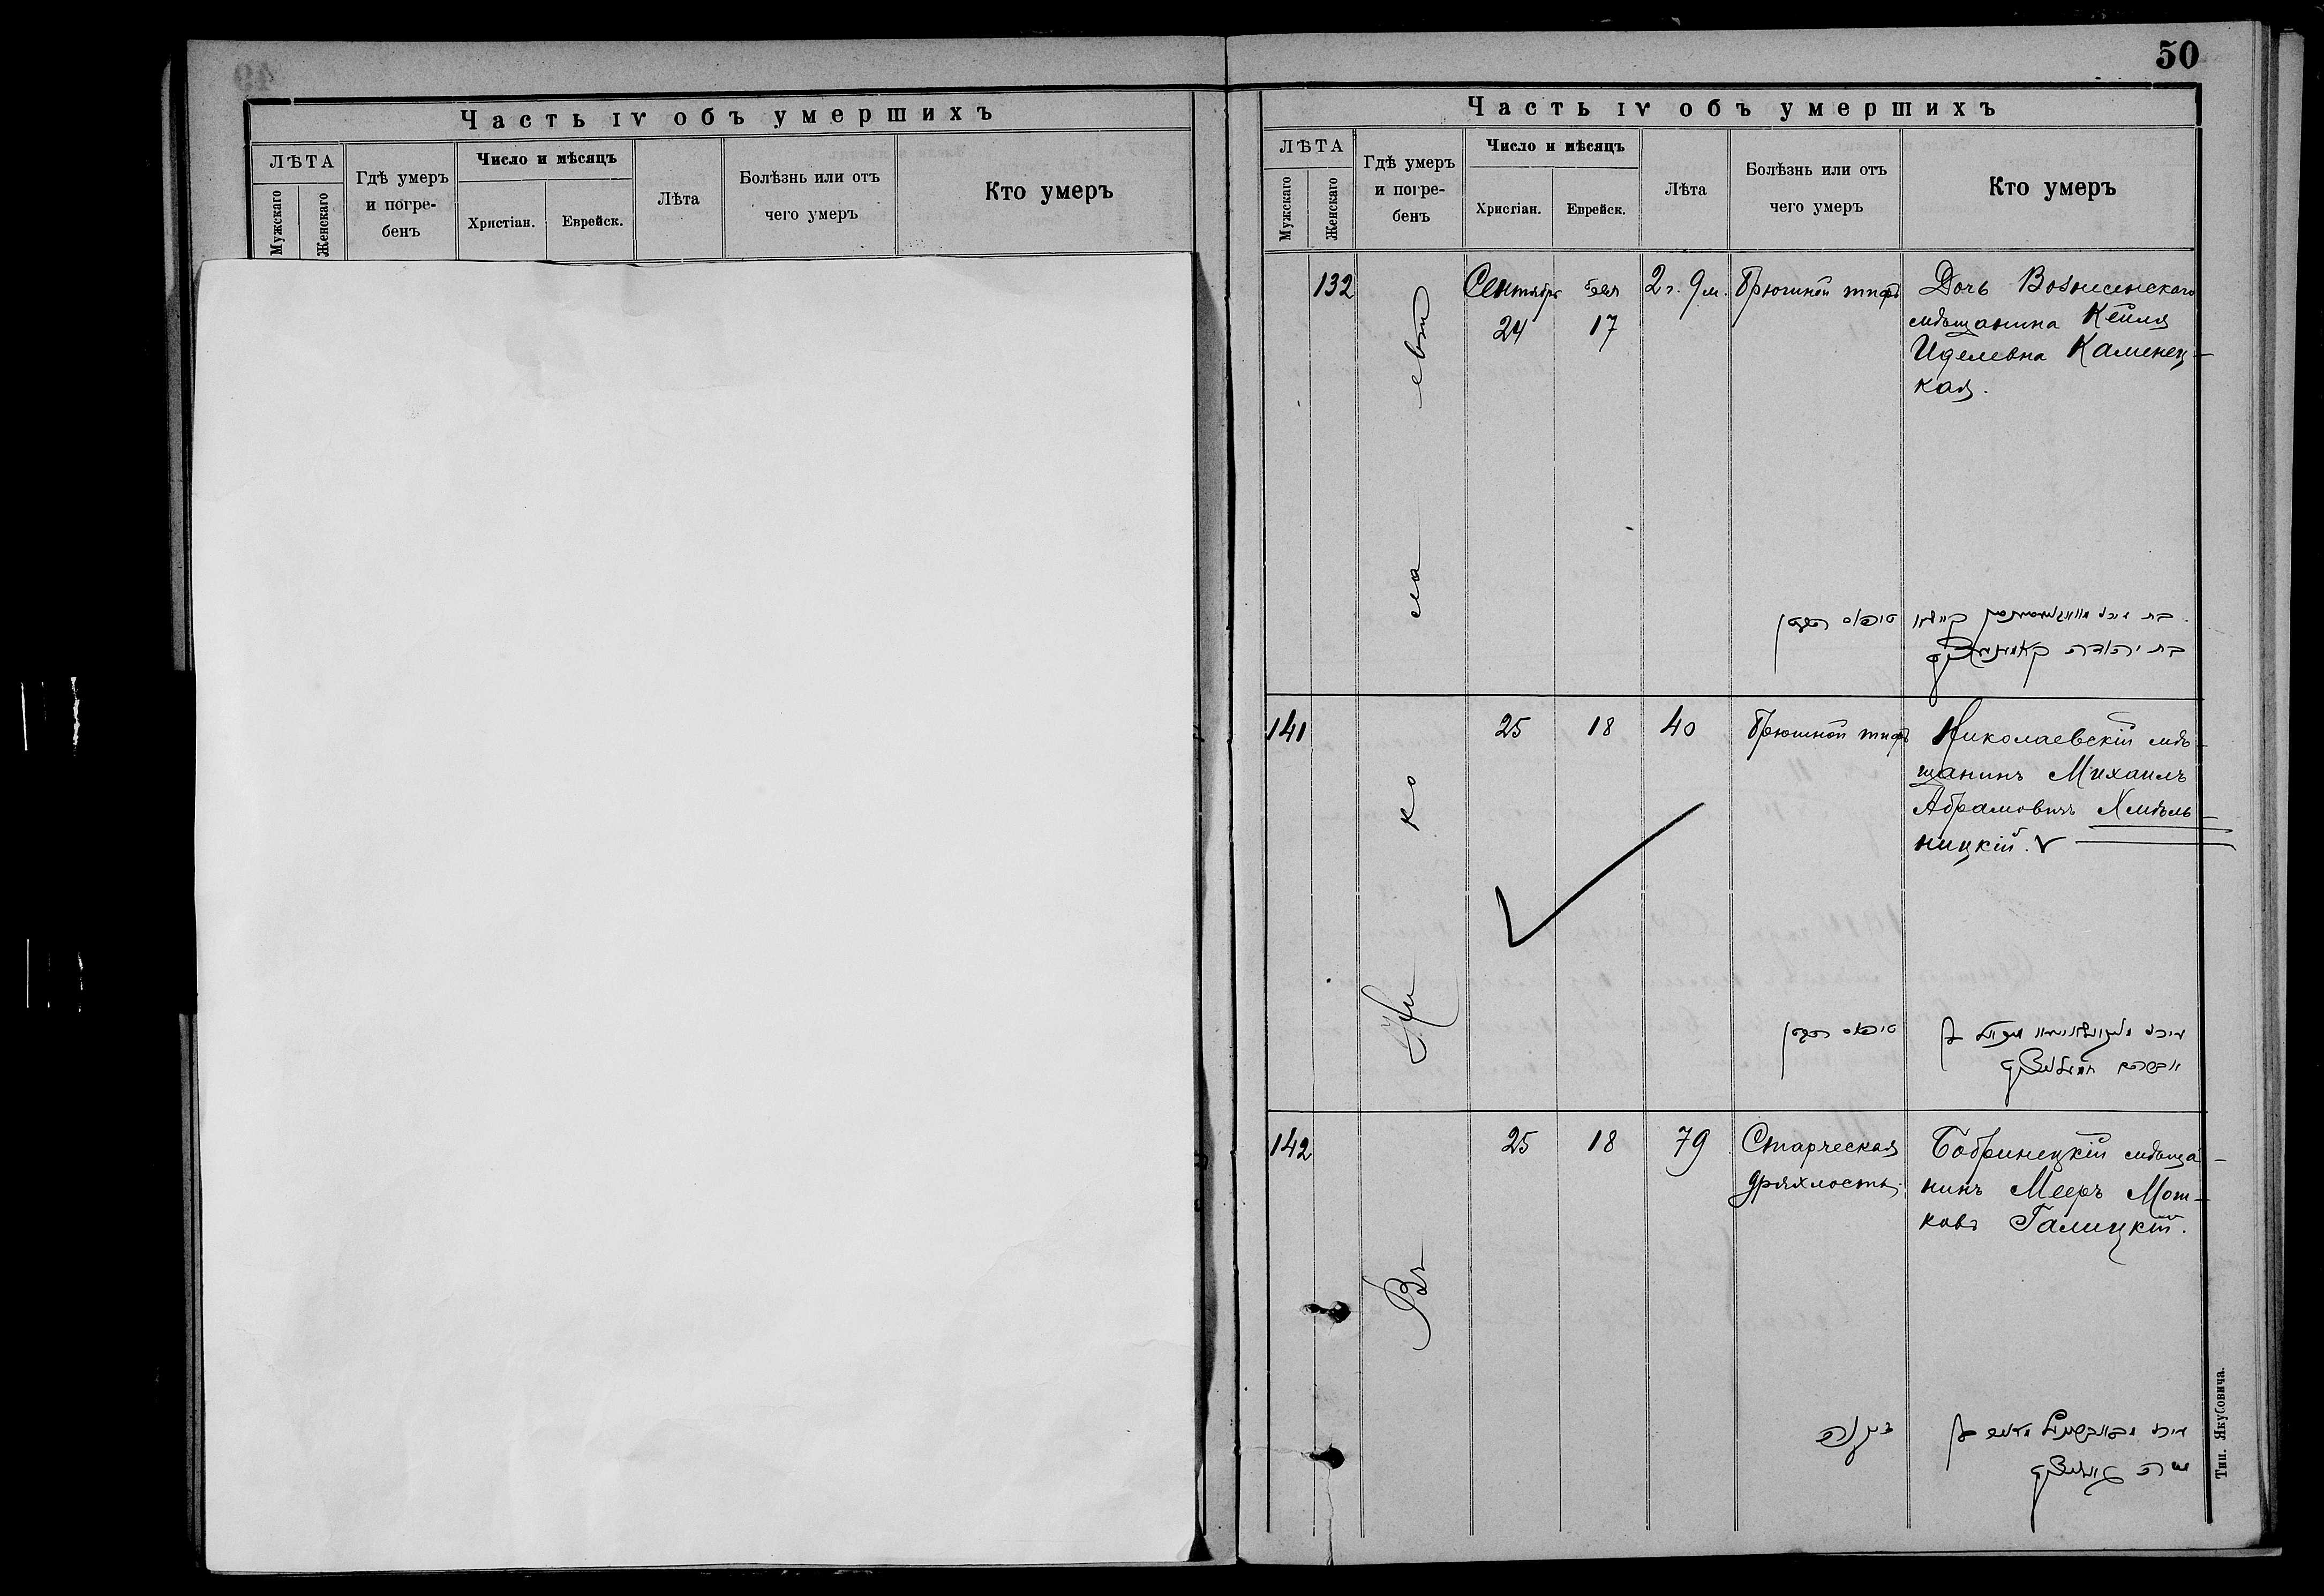 50
Часть IV объ умершихъ
ЛѢТА
Мужскаго
Женскаго
Гдѣ умеръ
и погре-
бенъ
Число и мѣсяцъ
Христіан.
Еврейск.
Лѣта
Болѣзнь или отъ
чего умеръ
Кто умеръ
Часть IV объ умершихъ
ЛѢТА
Мужскаго
Женскаго
Гдѣ умеръ
и погре-
бенъ
Число и мѣсяцъ
Христіан.
Еврейск.
Лѣта
Болѣзнь или отъ
чего умеръ
Кто умеръ
Въ Николаевѣ
132
Сентябрь
24
17
2 г. 9 м.
Брюшной тифъ
Дочь Вознесенскаго
мѣщанина Кейля
Иделевна Каменец-
кая.
בת יהודה קאמינצקי
141
25
18
40
Брюшной тифъ
Николаевскій мѣ-
щанинъ Михаилъ
Абрамовичъ Хмѣль-
ницкій.
142
25
18
79
Старческая
дряхлость.
Бобринецкій мѣща-
нинъ Мееръ Мош-
ковъ Галицкій.
זקנה
Тип. Якубовича.